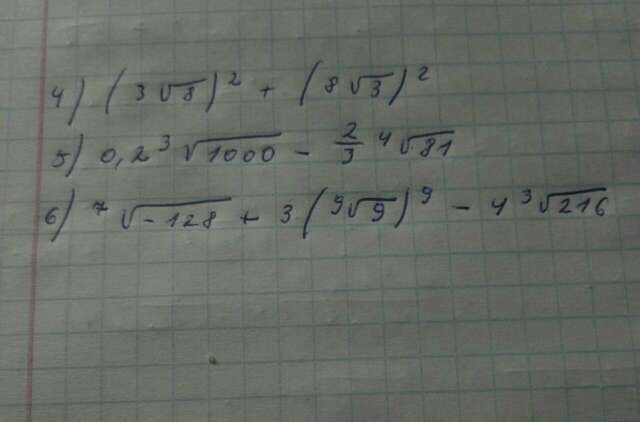 4) (3√8)² + (8√3)²
5) 0,2 ³√1000 - 2/3 ⁴√81
6) ⁷√-128 + 3(⁹√9)⁹ - 4 ³√216